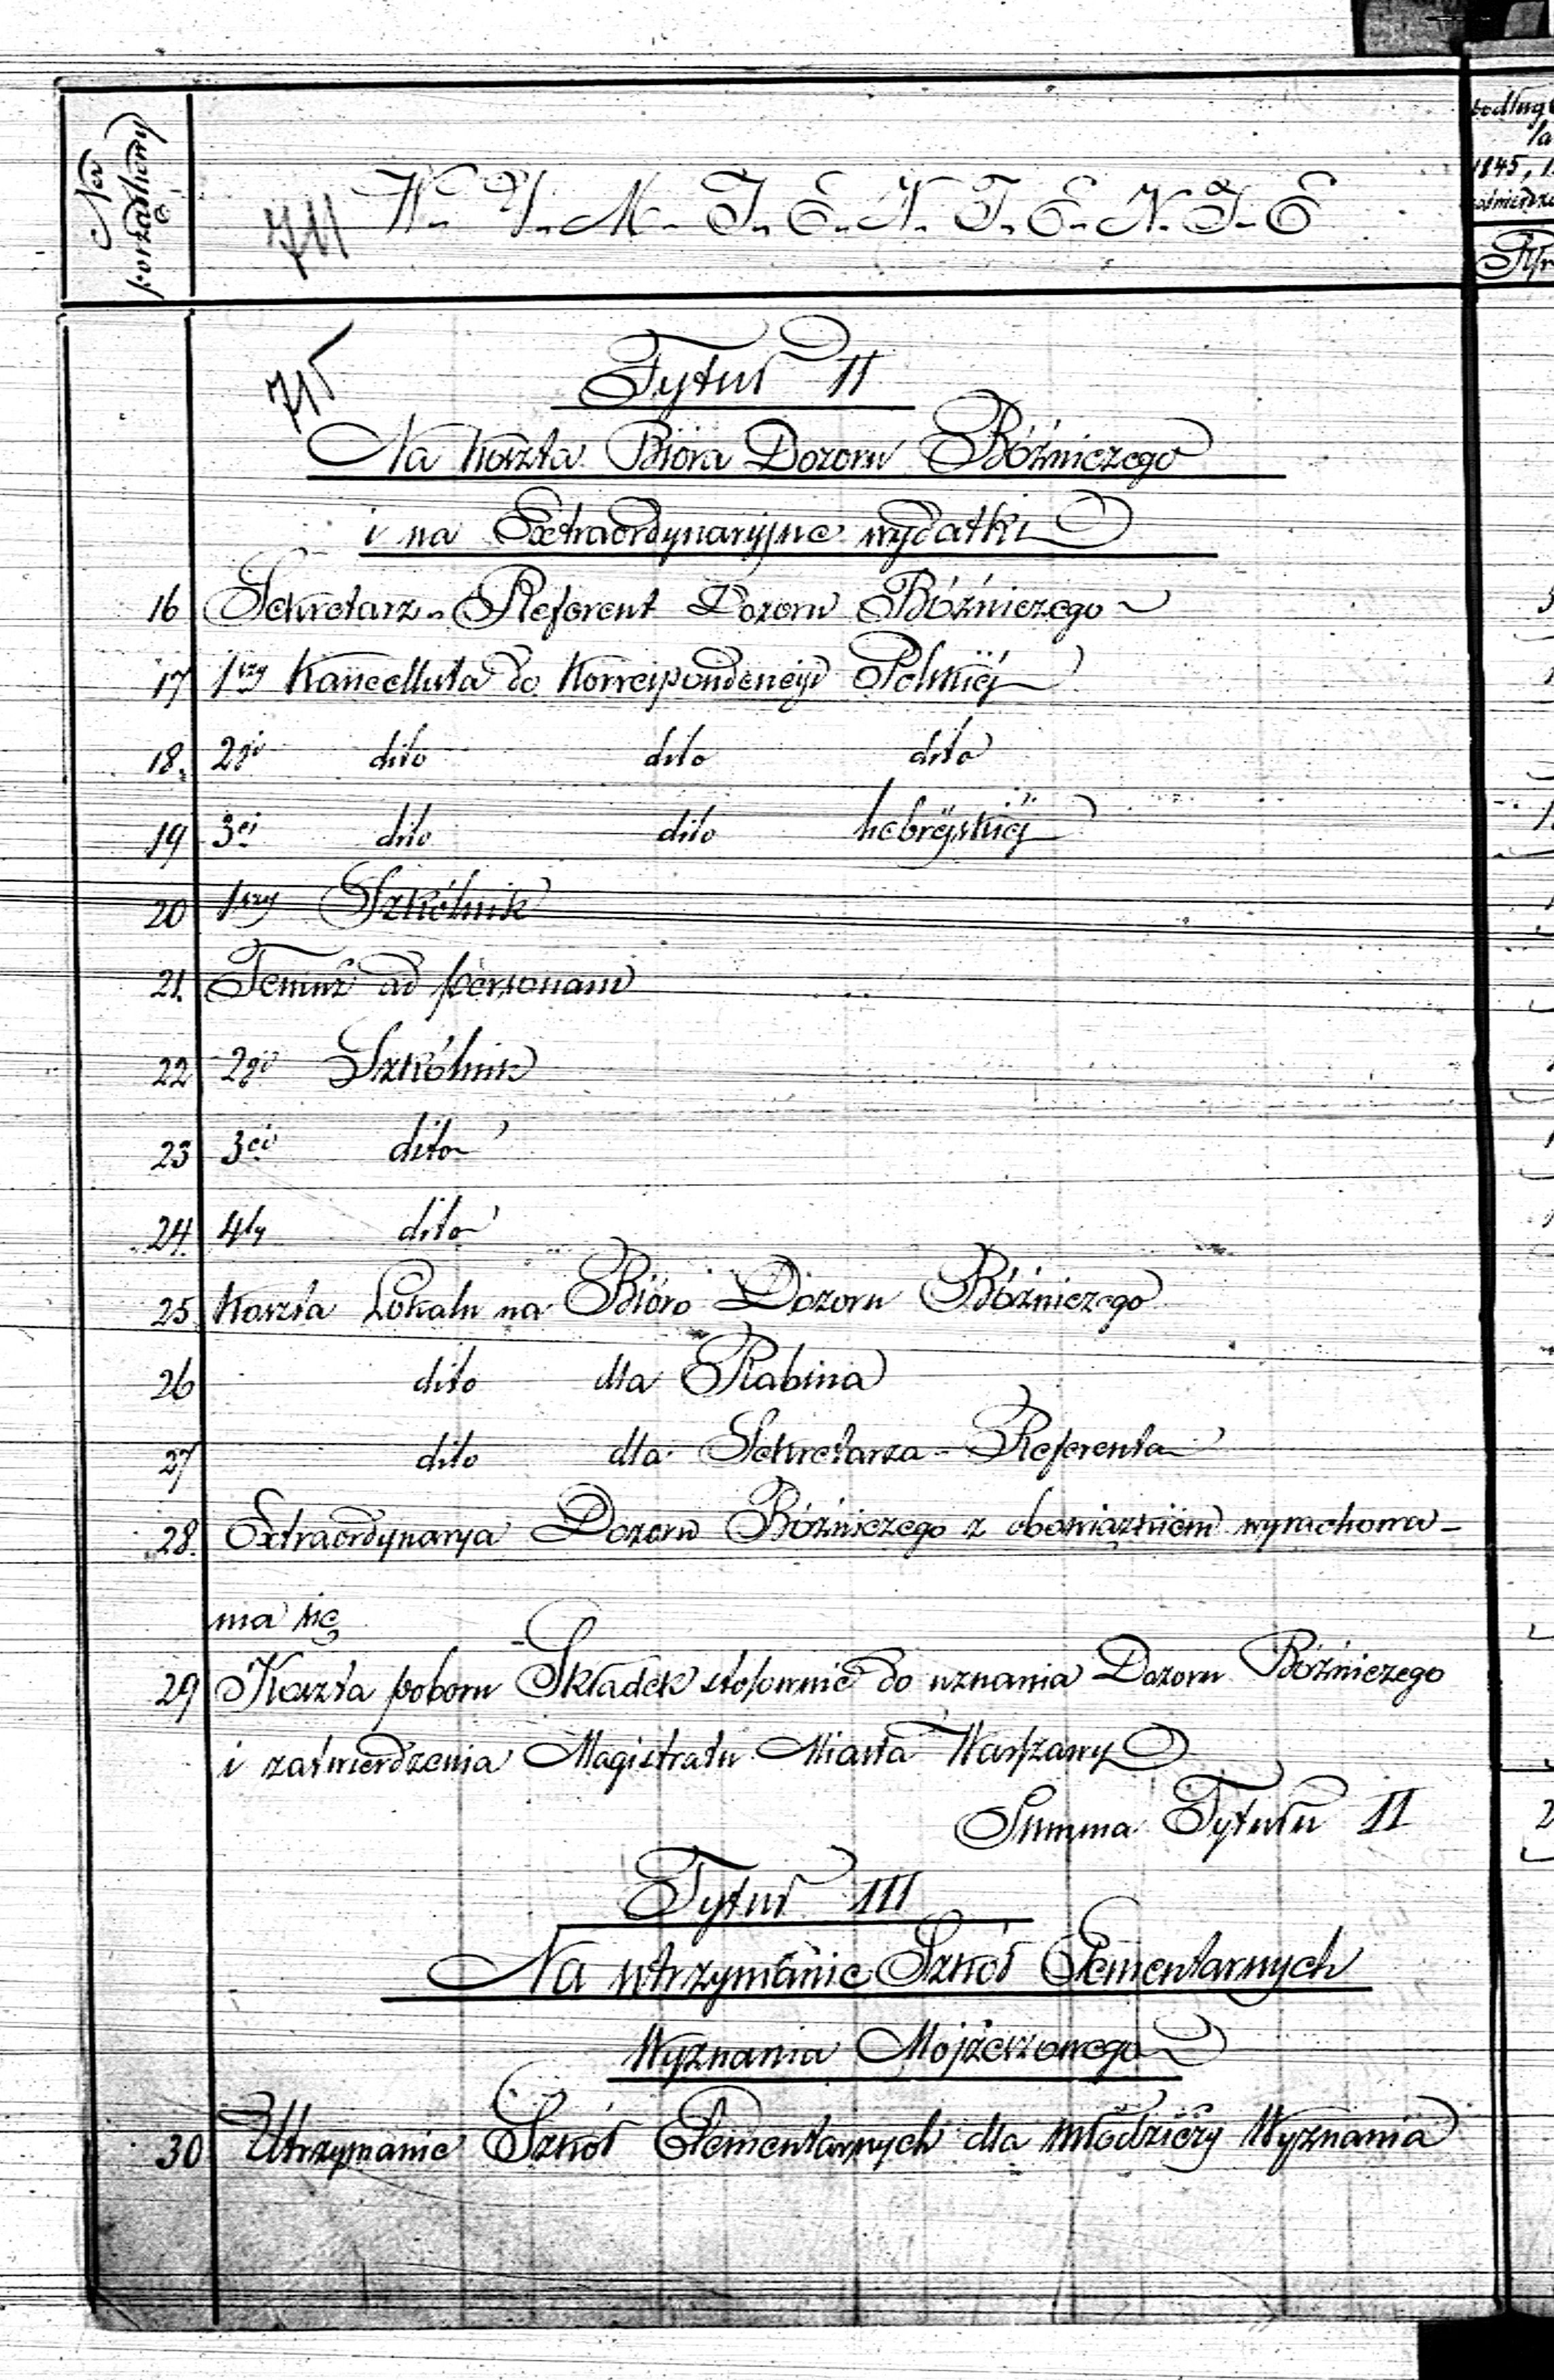 Ner porządkowy
W. Y. M. I. E. N. I. E. N. I. E
711
podług
1845, 1
715
Tytuł II
Na Koszta Bióra Dozoru Bóżniczego
i na Extraordynaryjne wydatki
16 Sekretarz - Referent Dozoru Bóżniczego
17 1szy Kancellista do Korrespondencyi Polskiéj
18. 2gi dito dito dito
19 3ci dito dito hebrejskiéj
20 1szy Szkólnik
21. Temuż ad personam
22 2gi Szkólnik
23 3ci dito
24. 4ty dito
25 Koszta Lokalu na Bióro Dozoru Bóżniczego
26 dito dla Rabina
27 dito dla Sekretarza - Referenta
28. Extraordynarya Dozoru Bóżniczego z obowiązkiem wyrachowa-
nia się
29 Koszta poboru Składek stosownie do uznania Dozoru Bóżniczego
i zatwierdzenia Magistratu Miasta Warszawy
Summa Tytułu II
Tytuł III
Na utrzymanie Szkół Elementarnych
Wyznania Mojżeszowego
30 Utrzymanie Szkół Elementarnych dla młodzieży Wyznania